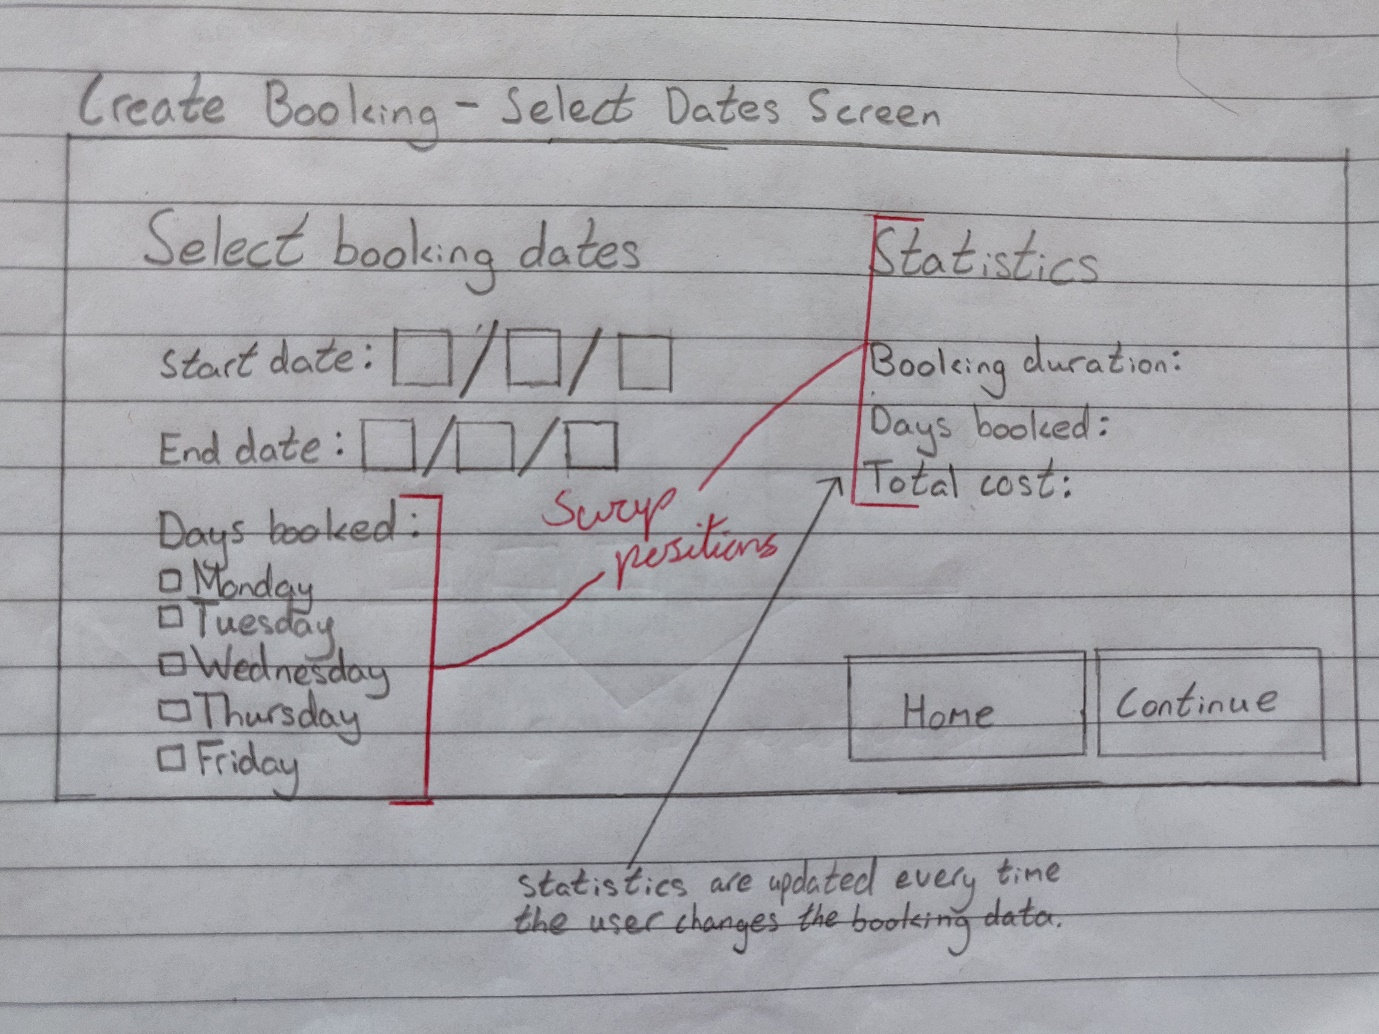 Create Booking - Select Dates Screen
Select booking dates
Start date: / /
End date: / /
Days booked:
Monday
Tuesday
Wednesday
Thursday
Friday
Swap
positions
Statistics
Booking duration:
Days booked:
Total cost:
Home
Continue
Statistics are updated every time
the user changes the booking data.